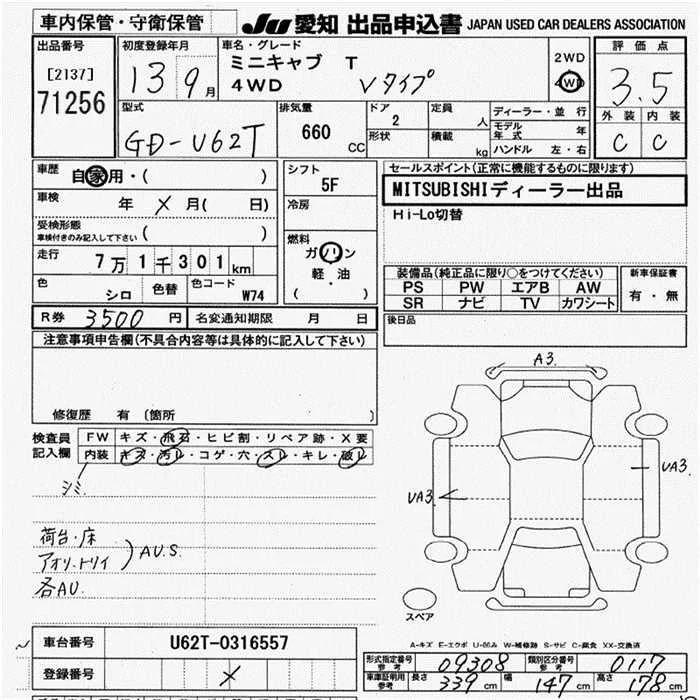 車内保管・守衛保管
JU 愛知 出品申込書 JAPAN USED CAR DEALERS ASSOCIATION
出品番号
[2137]
71256
初度登録年月
13 9月
車名・グレード
ミニキャブ T
4WD Vタイプ
2WD
4WD
評価点
3.5
外装 内装
C C
型式
GD-U62T
排気量
660
CC
ドア
2
形状
定員
人
積載
kg
ディーラー・並行
モデル年式 年
ハンドル 左・右
車歴
自家用・( )
車検
年 × 月( 日)
受検形態
車検付きのみ記入して下さい ( )
走行
7万1千301km
色
シロ
色替
色コード
W74
シフト
5F
冷房
燃料
ガソリン
軽・油
( )
セールスポイント(正常に機能するものに限ります)
MITSUBISHIディーラー出品
Hi-Lo切替
装備品(純正品に限り○をつけてください)
PS PW エアB AW
SR ナビ TV カワシート
新車保証書
有・無
R券 3500円 名変通知期限 月 日
後日品
注意事項申告欄(不具合内容等は具体的に記入して下さい)
修復歴 有 〔箇所 〕
検査員
記入欄
FW キズ・飛石・ヒビ割・リペア跡・X要
内装 キズ・汚レ・コゲ・穴・スレ・キレ・破レ
シミ
荷台・床
アオリ・トリイ
) AU.S.
各AU.
A3.
UA3.
UA3.
スペア
A-キズ E-エクボ U-凹み W-補修跡 S-サビ C-腐食 XX-交換済
車台番号 U62T-0316557
登録番号 ×
形式指定番号
参考
09308
類別区分番号
参考
0117
車庫証明用
参考
長さ 339cm 幅 147cm 高さ 178cm